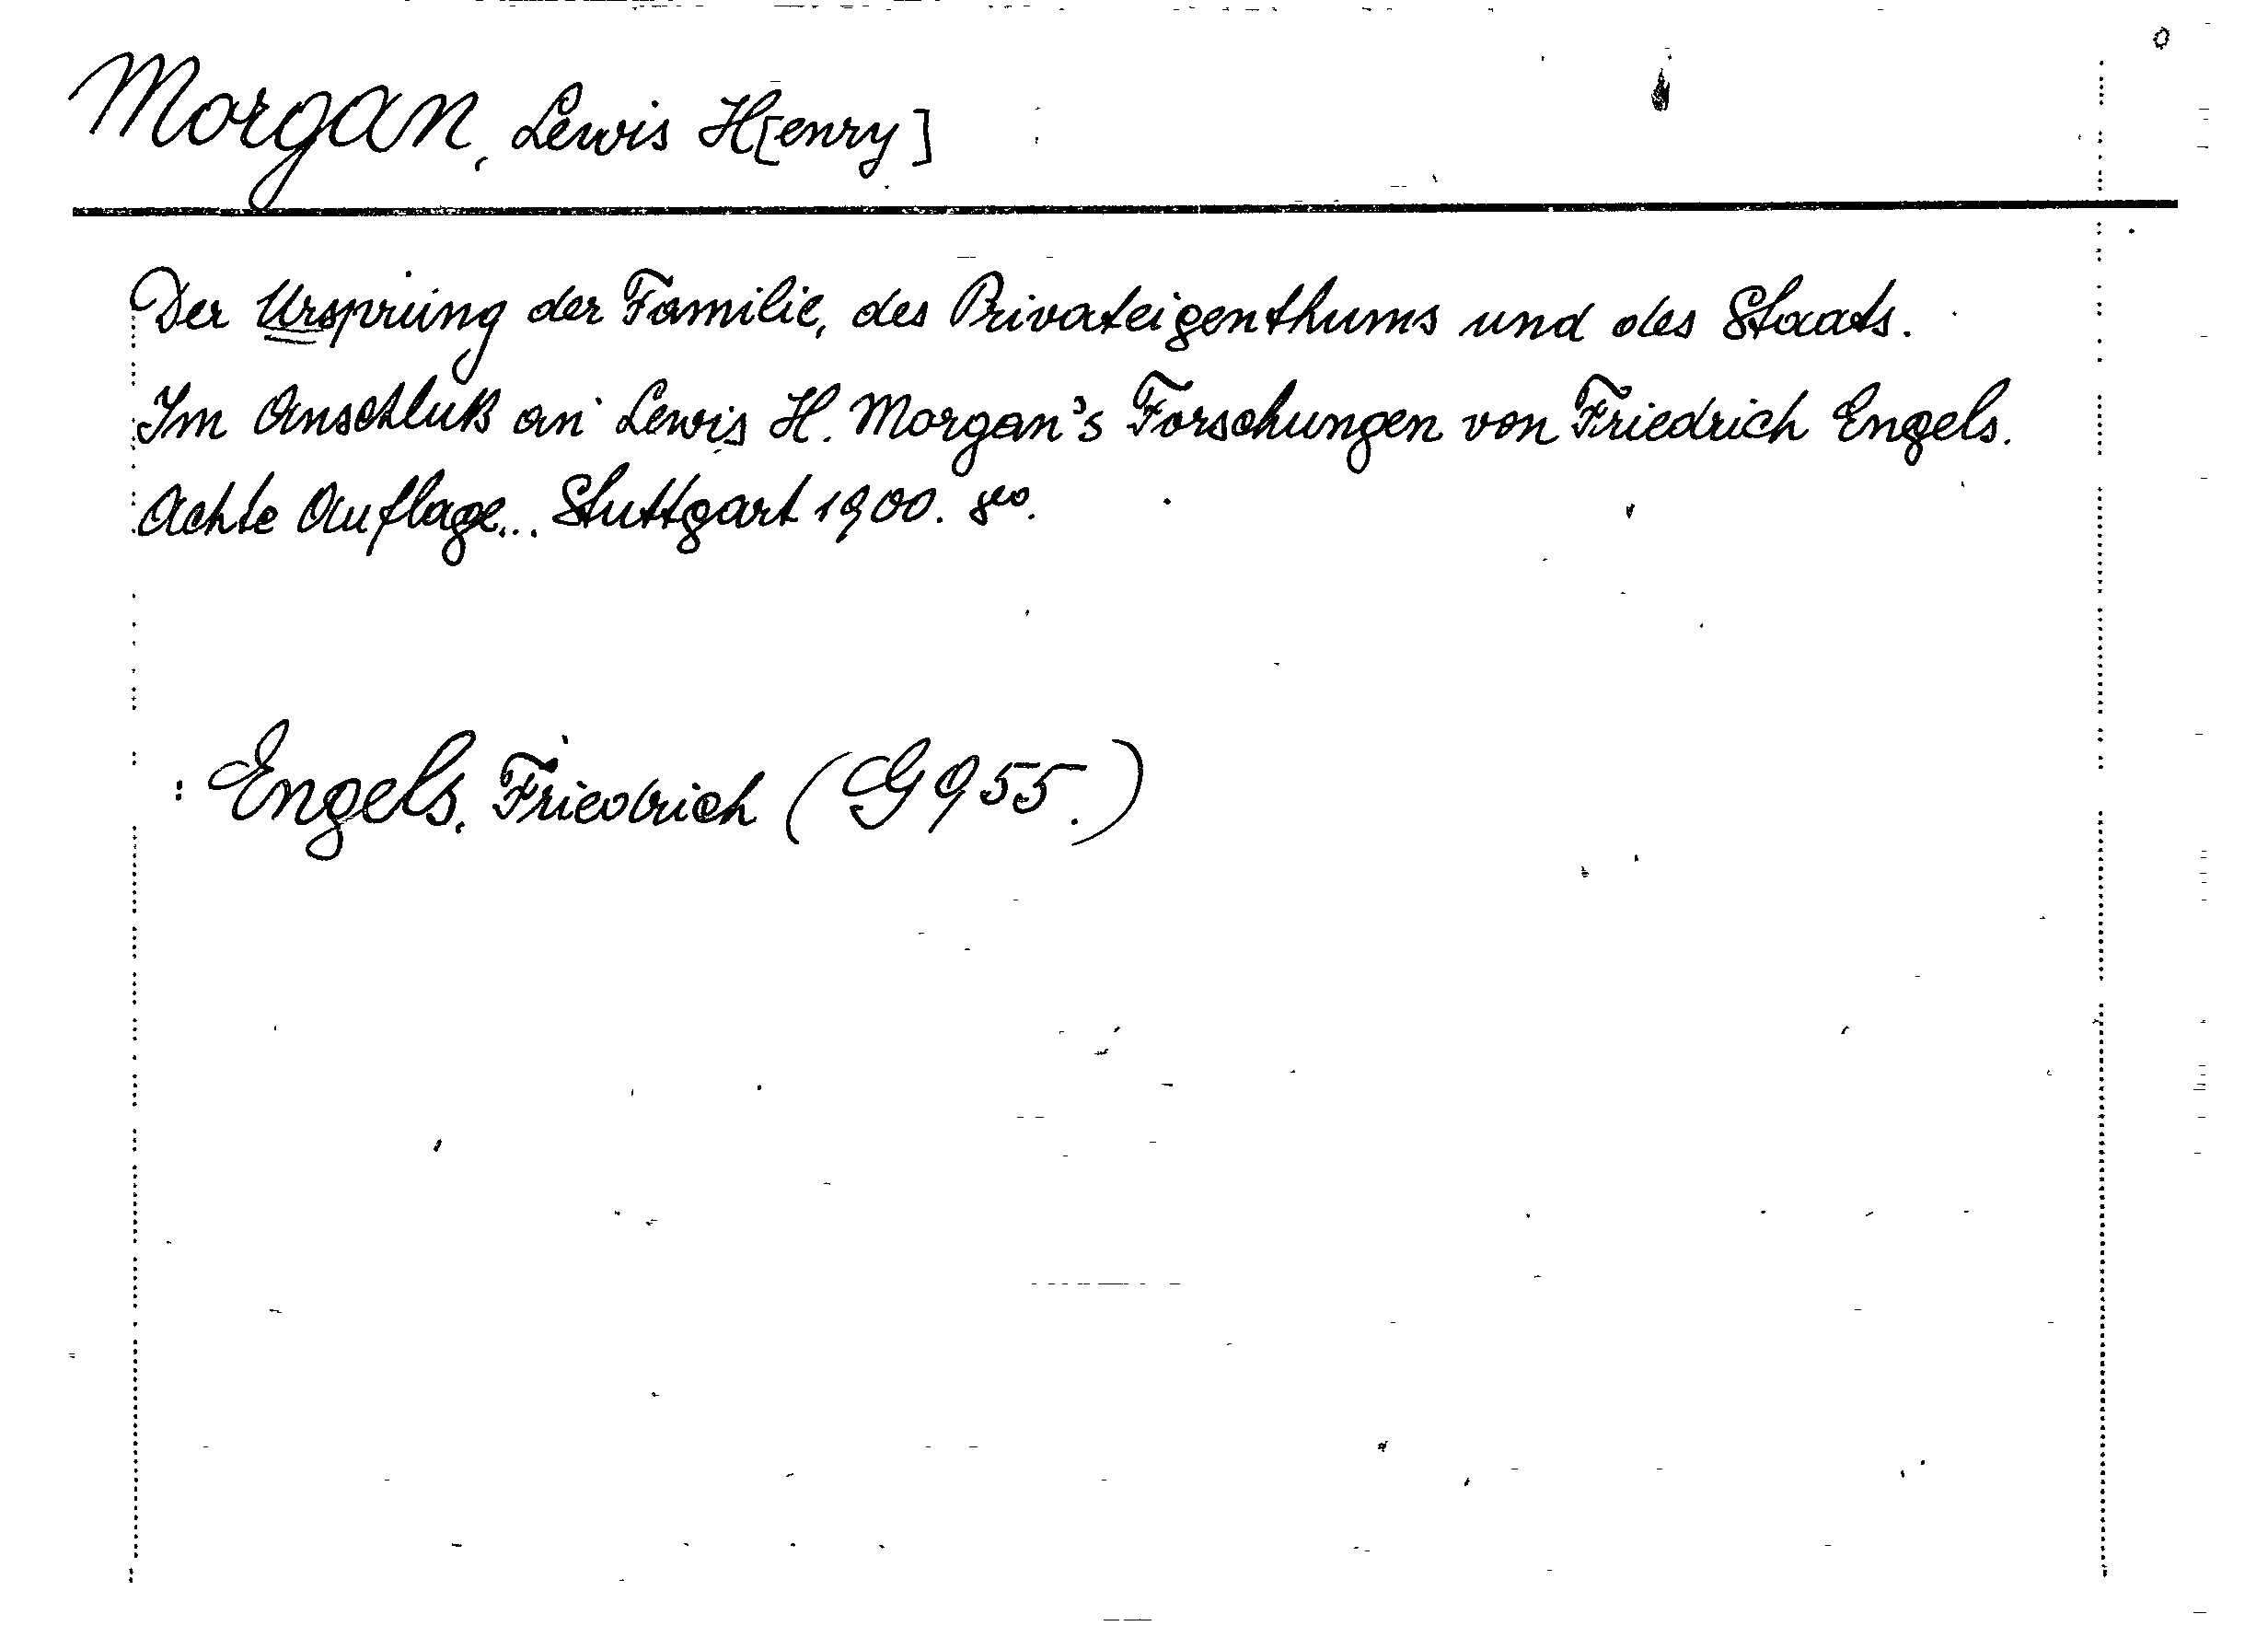 Morgan, Lewis H[enry]
Der Ursprung der Familie, des Privateigenthums und des Staats.
Im Anschluß an Lewis H. Morgan's Forschungen von Friedrich Engels.
Achte Auflage... Stuttgart 1900. 8vo.
: Engels, Friedrich (G 955.)